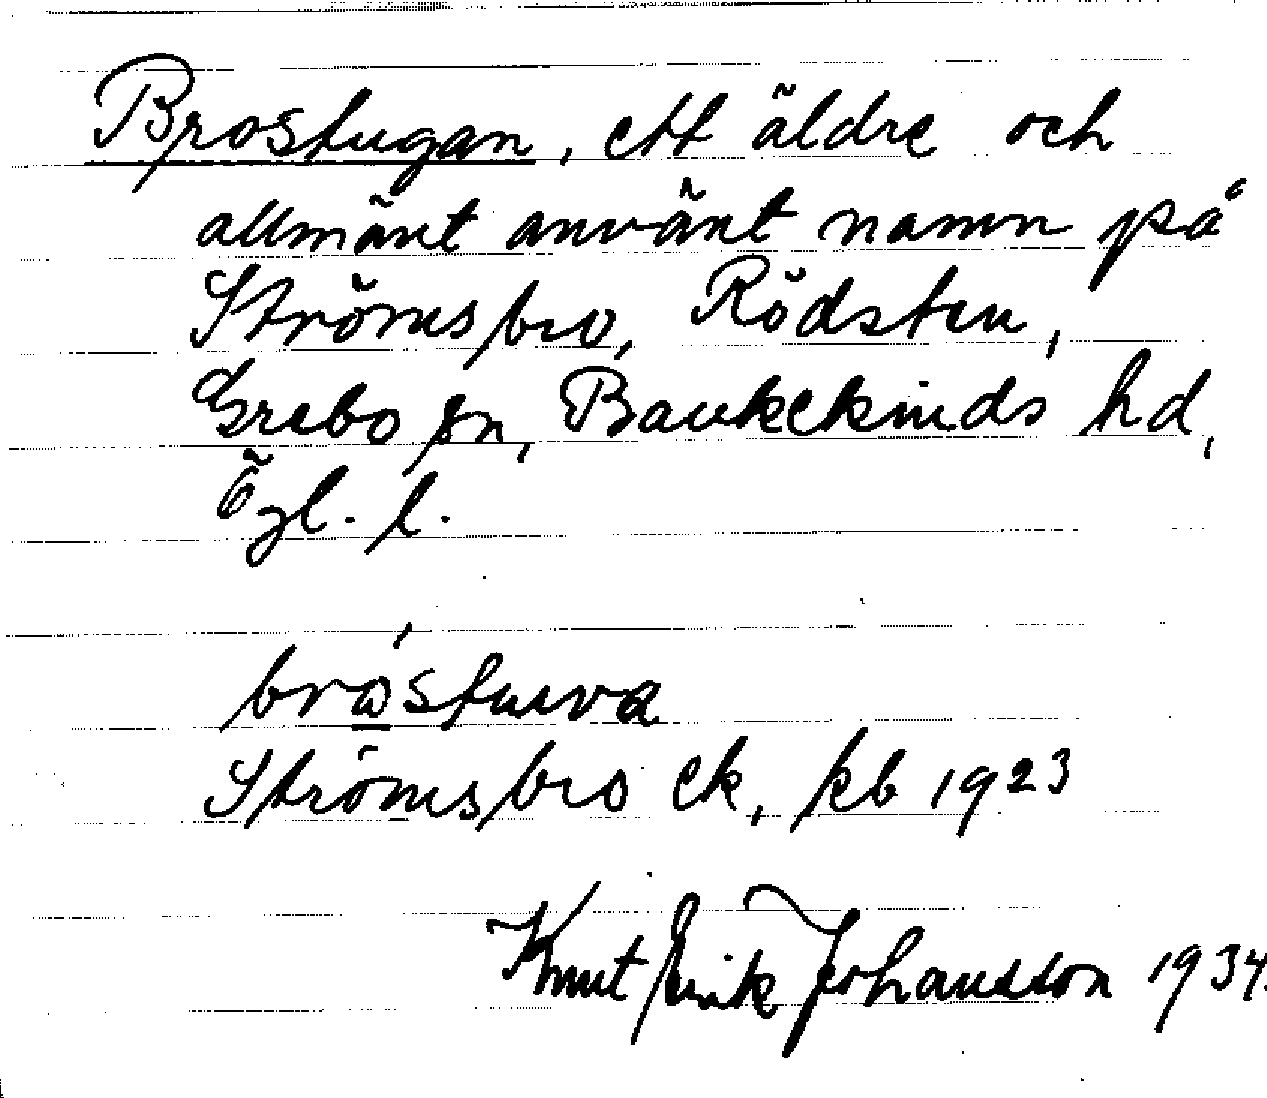 Brostugan, ett äldre och
allmänt använt namn på
Strömsbro, Rödsten,
Grebo sn, Bankekinds hd,
Ögl. l.
bro̲´stuva
Strömsbro ek, kb 1923
Knut Erik Johansson 1934.